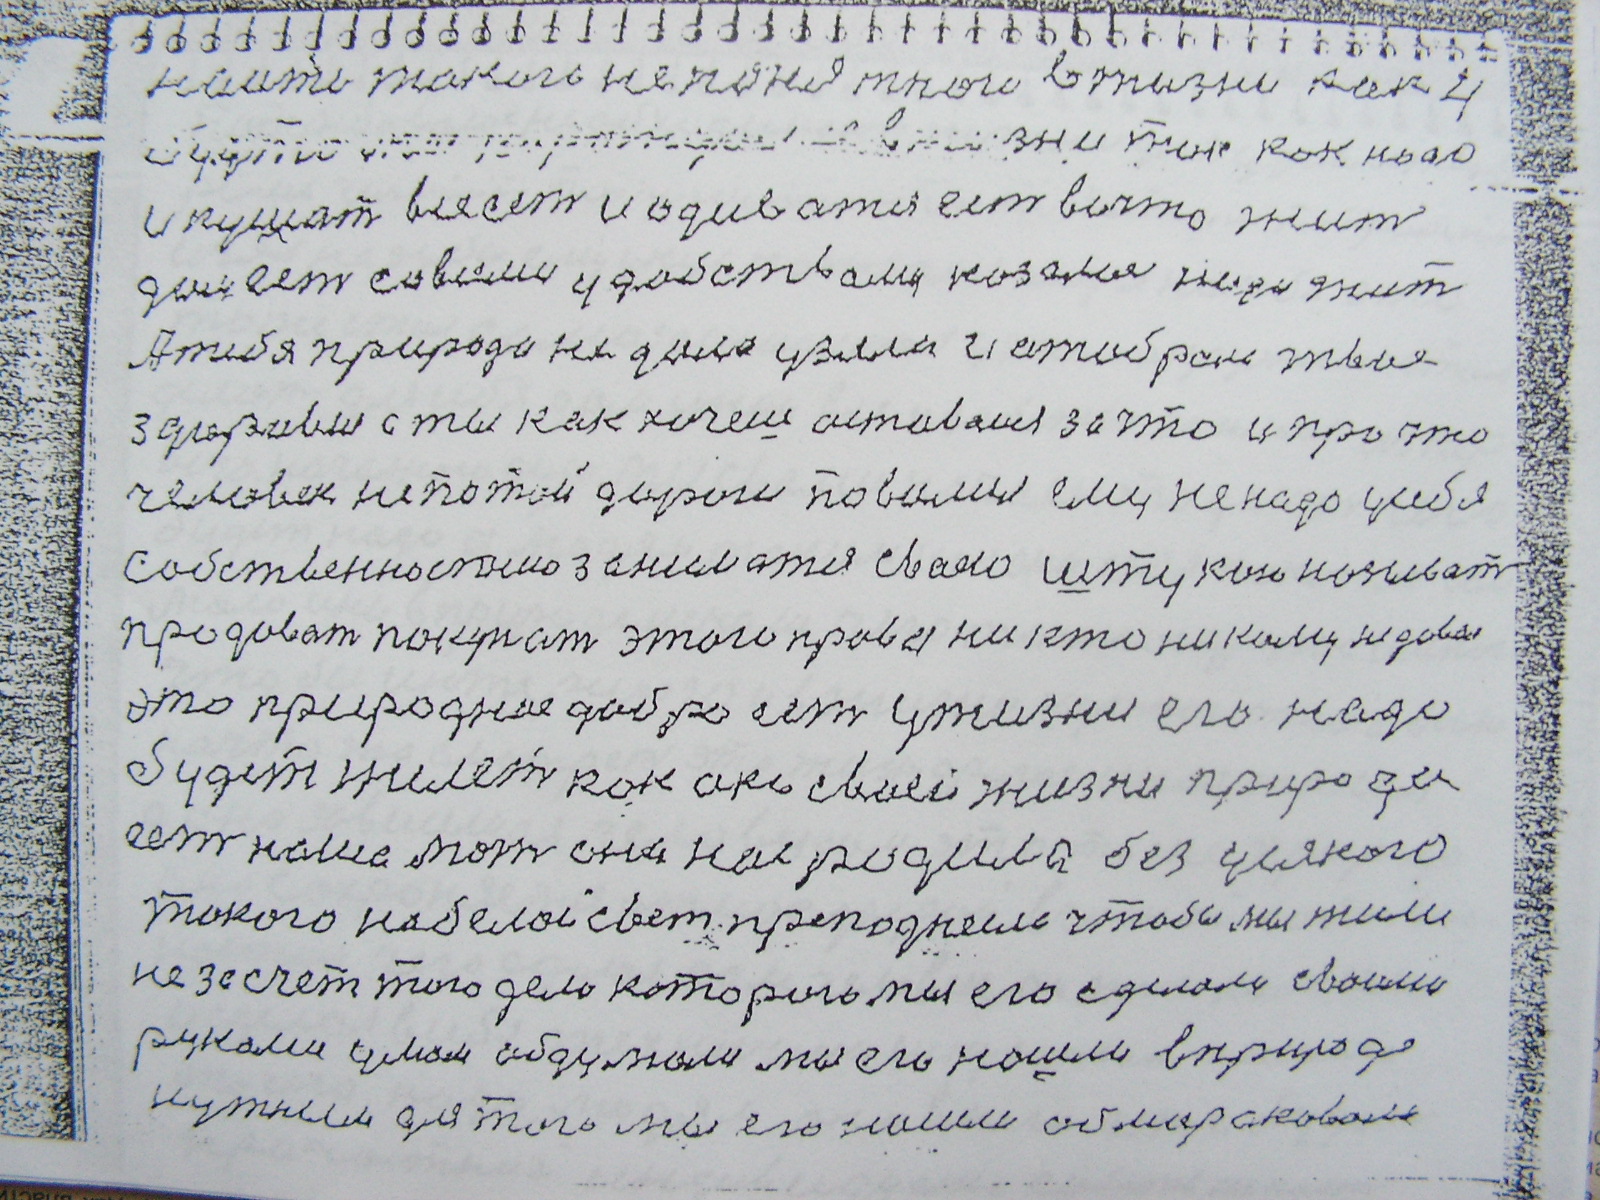 наити такого непоня тного в жизни как 4
зни так как надо
и кушат всест и одиватся ест вычто жит
дом ест совсеми удобствами козалося надо жит
А тибя природа ни дала узяла и отобрала твое
здоровие а ты как хочеш оставайся за что и про что
человек непотой дороги повилися ему ненадо уибя
собственностию заниматся сваею штукою називат
продават покупат этого права никто никому недавал
это природное добро ест ужизни его надо
будет жилет как око своей жизни природа
ест наша мат она нас родила без усякого
такого набелой свет преподнесла чтобы мы жили
не засчет того дела которого мы его сделали своими
руками умом обдумали мы его нашли вприроде
нужным для того мы его нашли обмараковали